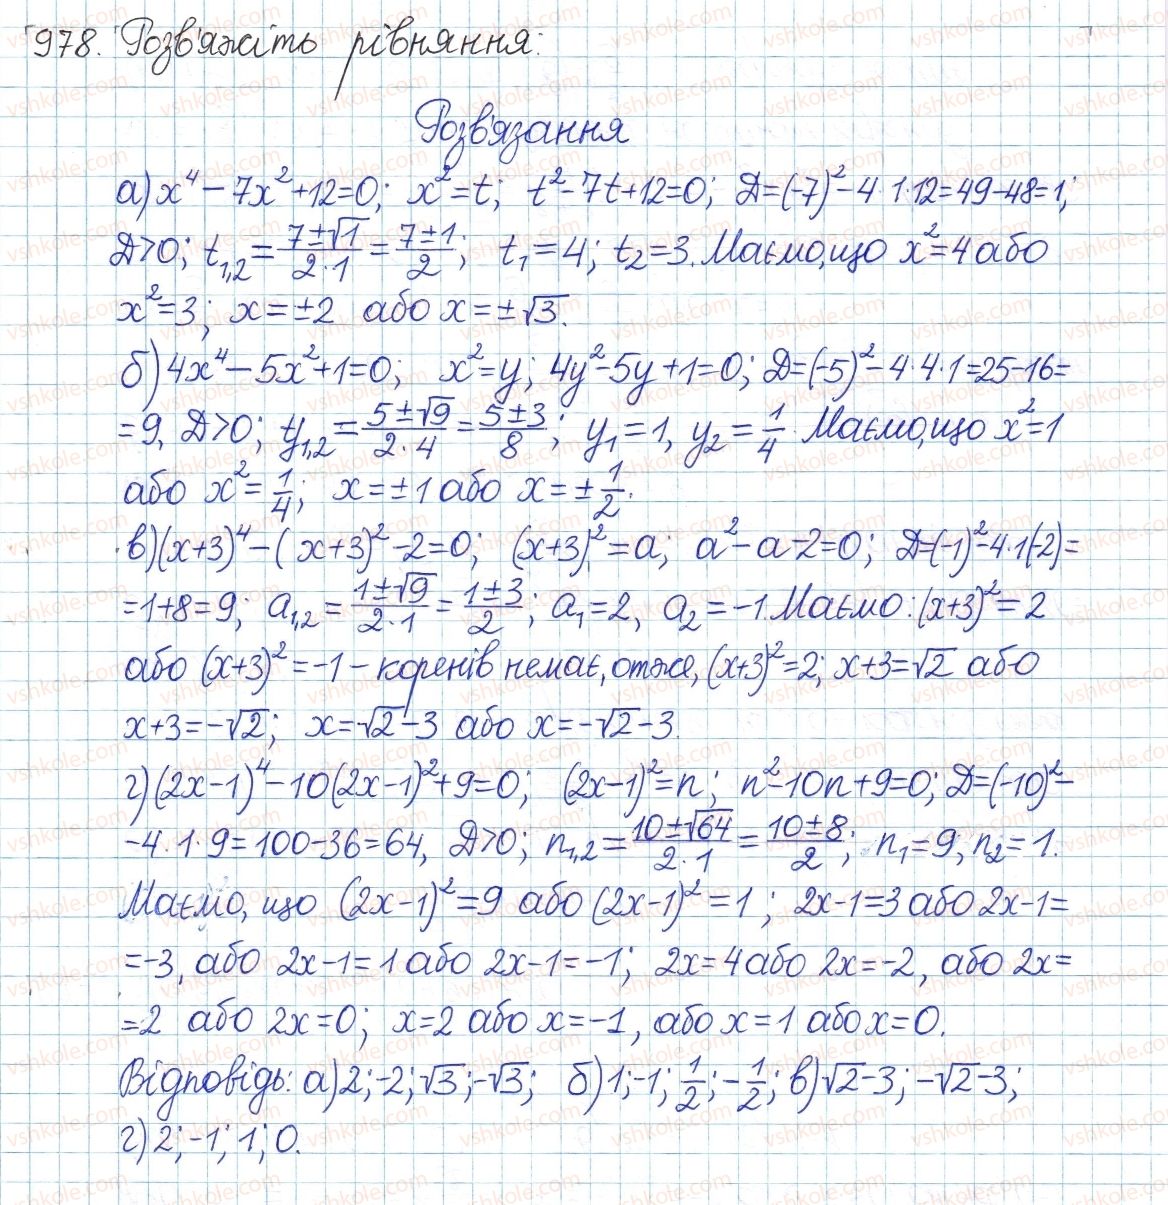 978. Розв'яжіть рівняння:
Розв'язання
а) x⁴ – 7x² + 12 = 0; x² = t; t² – 7t + 12 = 0; D = (-7)² – 4·1·12 = 49 – 48 = 1;
D > 0; t₁,₂ = (7 ± √1)/(2·1) = (7 ± 1)/2; t₁ = 4; t₂ = 3. Маємо, що x² = 4 або
x² = 3; x = ±2 або x = ±√3.
б) 4x⁴ – 5x² + 1 = 0; x² = y; 4y² – 5y + 1 = 0; D = (-5)² – 4·4·1 = 25 – 16 =
= 9, D > 0; y₁,₂ = (5 ± √9)/(2·4) = (5 ± 3)/8; y₁ = 1, y₂ = 1/4. Маємо, що x² = 1
або x² = 1/4; x = ±1 або x = ±1/2.
в) (x+3)⁴ – (x+3)² – 2 = 0; (x+3)² = a; a² – a – 2 = 0; D = (-1)² – 4·1(-2) =
= 1 + 8 = 9; a₁,₂ = (1 ± √9)/(2·1) = (1 ± 3)/2; a₁ = 2, a₂ = -1. Маємо: (x+3)² = 2
або (x+3)² = -1 – коренів немає, отже, (x+3)² = 2; x+3 = √2 або
x+3 = -√2; x = √2 – 3 або x = -√2 – 3.
г) (2x–1)⁴ – 10(2x–1)² + 9 = 0; (2x–1)² = n; n² – 10n + 9 = 0; D = (-10)² –
– 4·1·9 = 100 – 36 = 64, D > 0; n₁,₂ = (10 ± √64)/(2·1) = (10 ± 8)/2; n₁ = 9, n₂ = 1.
Маємо, що (2x–1)² = 9 або (2x–1)² = 1; 2x–1 = 3 або 2x–1 =
= -3, або 2x–1 = 1 або 2x–1 = -1; 2x = 4 або 2x = -2, або 2x =
= 2 або 2x = 0; x = 2 або x = -1, або x = 1 або x = 0.
Відповідь: а) 2; -2; √3; -√3; б) 1; -1; 1/2; -1/2; в) √2 – 3; -√2 – 3;
г) 2; -1; 1; 0.
vshkole.com